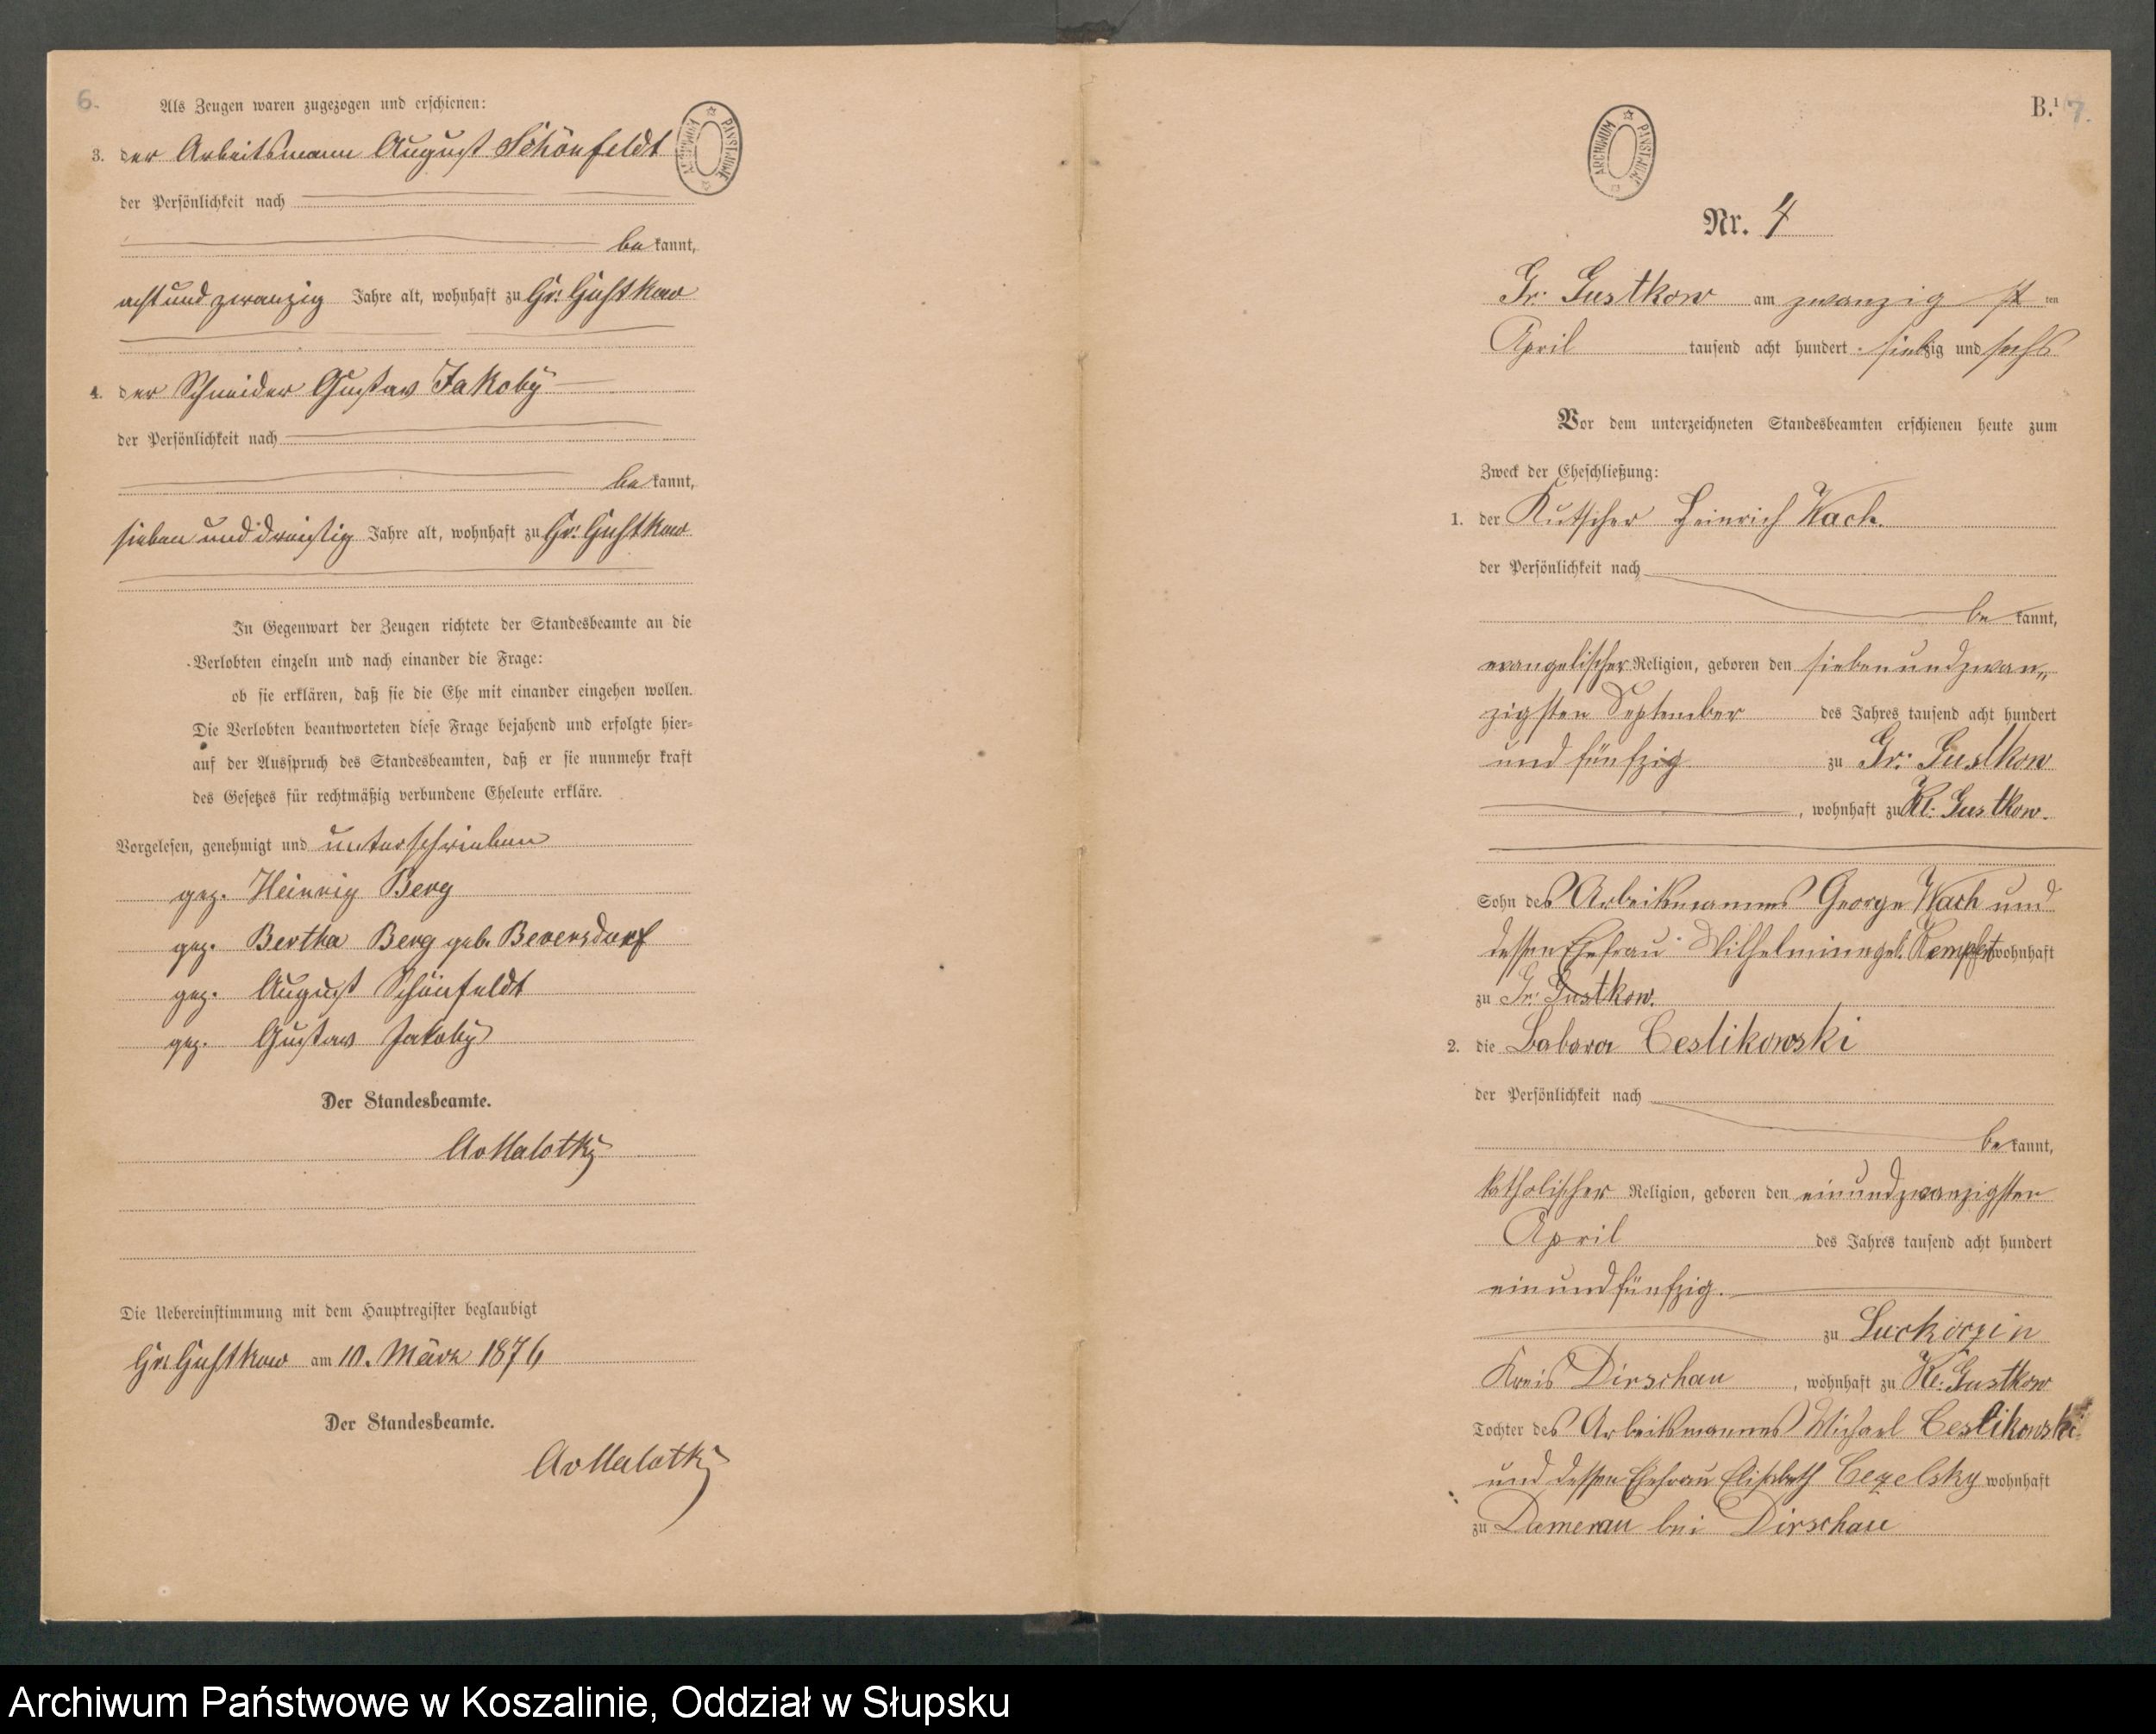 6.
Als Zeugen waren zugezogen und erschienen:
3. der Arbeitsmann August Schönfeldt
der Persönlichkeit nach
be kannt,
acht und zwanzig Jahre alt, wohnhaft zu Gr: Gustkow
4. der Schneider Gustav Jakoby
der Persönlichkeit nach
be kannt,
sieben und dreißig Jahre alt, wohnhaft zu Gr: Gustkow
In Gegenwart der Zeugen richtete der Standesbeamte an die
Verlobten einzeln und nach einander die Frage:
ob sie erklären, daß sie die Ehe mit einander eingehen wollen.
Die Verlobten beantworteten diese Frage bejahend und erfolgte hier=
auf der Ausspruch des Standesbeamten, daß er sie nunmehr kraft
des Gesetzes für rechtmäßig verbundene Eheleute erkläre.
Vorgelesen, genehmigt und unterschrieben
gez. Heinrig Berg
gez. Bertha Berg geb. Beversdorf
gez. August Schönfeldt
gez. Gustav Jakoby
Der Standesbeamte.
AvMalotky
Die Uebereinstimmung mit dem Hauptregister beglaubigt
Gr: Gustkow am 10. März 1876
Der Standesbeamte.
AvMalotky
ARCHIWUM PAŃSTWOWE
B.¹ 7.
ARCHIWUM PAŃSTWOWE
Nr. 4
Gr: Gustkow am zwanzig st ten
April tausend acht hundert siebzig und sechs
Vor dem unterzeichneten Standesbeamten erschienen heute zum
Zweck der Eheschließung:
1. der Kutscher Heinrich Wach.
der Persönlichkeit nach
be kannt,
evangelischer Religion, geboren den siebenundzwan„
zigsten September des Jahres tausend acht hundert
und fünfzig zu Gr: Gustkow
, wohnhaft zu Kl: Gustkow.
Sohn des Arbeitsmannes George Wach und
dessen Ehefrau Wilhelmine geb. wohnhaft
zu Gr: Gustkow.
2. die Babara Ceslikowski
der Persönlichkeit nach
be kannt,
katholischer Religion, geboren den einundzwanzigsten
April des Jahres tausend acht hundert
einundfünfzig.
zu Luckoczin
Kreis Dirschau, wohnhaft zu Kl: Gustkow
Tochter des Arbeitsmannes Michael Ceslikowski
und dessen Ehefrau Elisabeth Cezelsky wohnhaft
zu Damerau bei Dirschau
Archiwum Państwowe w Koszalinie, Oddział w Słupsku